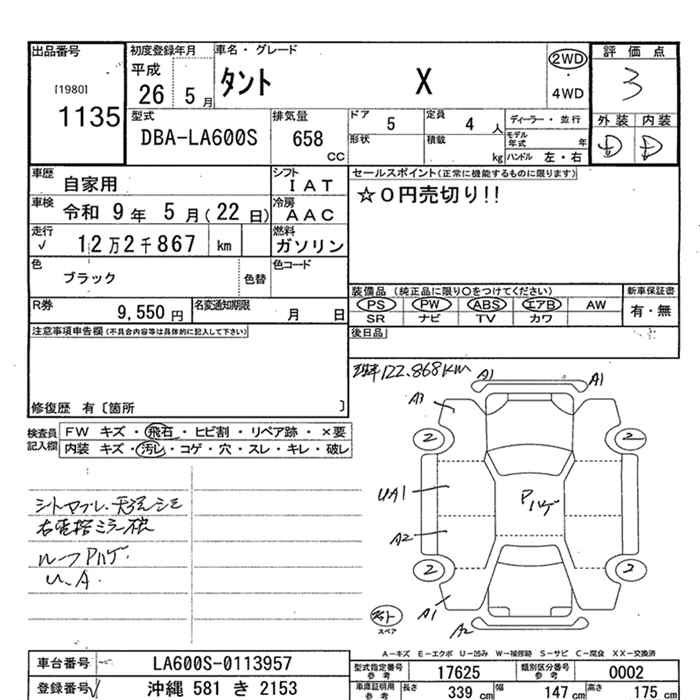 出品番号
[1980]
1135
初度登録年月
平成
26 5 月
車名・グレード
タント X
2WD
・
4WD
評価点
3
外装 内装
D D
型式
DBA-LA600S
排気量
658
CC
ドア
5
定員
4 人
形状
積載
kg
ディーラー・並行
モデル年式 年
ハンドル 左・右
車歴
自家用
シフト
IAT
車検
令和 9 年 5 月(22 日)
冷房
AAC
走行
✓ 12万2千867 km
燃料
ガソリン
色
ブラック
色替
色コード
セールスポイント(正常に機能するものに限ります)
☆0円売切り!!
R券
9,550 円
名変通知期限
月 日
装備品(純正品に限り○をつけてください)
PS PW ABS エアB AW
SR ナビ TV カワ
新車保証書
有・無
後日品
注意事項申告欄(不具合内容等は具体的に記入して下さい)
修復歴 有〔箇所 〕
検査員記入欄
FW キズ・飛石・ヒビ割・リペア跡・×要
内装 キズ・汚レ・コゲ・穴・スレ・キレ・破レ
122.868km
A1 A1
A3
2 2
UA1
Pハゲ
A2
2 2
A1
A2
スペア
シトヨゴレ、天張シミ
右電格ミラー
ルーフPハゲ
U.A.
A-キズ E-エクボ U-凹み W-補修跡 S-サビ C-腐食 XX-交換済
車台番号
LA600S-0113957
登録番号
沖縄 581 き 2153
型式指定番号 参考
17625
類別区分番号 参考
0002
車庫証明用 参考
長さ 339 cm
幅 147 cm
高さ 175 cm